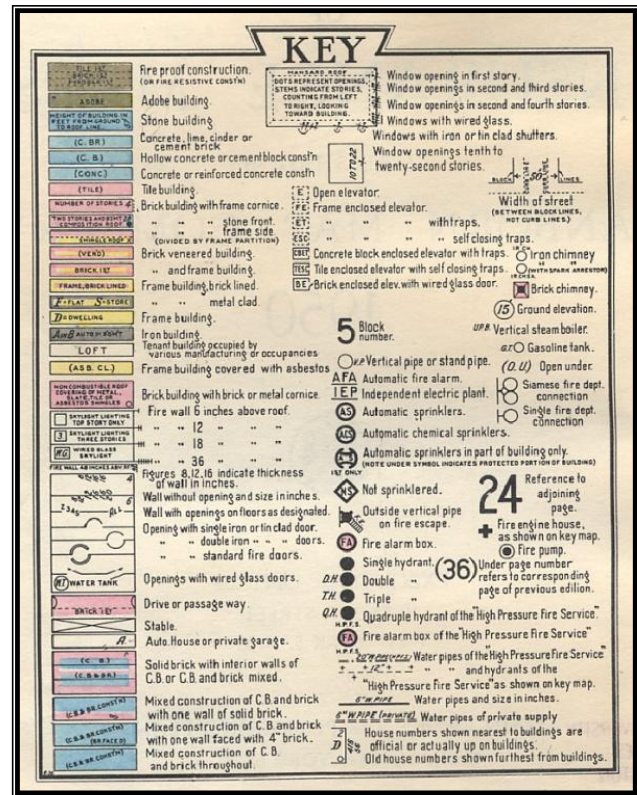 KEY
TILE 1ST
BRICK 1ST
Fire proof construction.
(OR FIRE RESISTIVE CONST'N)
ADOBE
Adobe building.
HEIGHT OF BUILDING IN
FEET FROM GROUND
TO ROOF LINE.
Stone building
(C. BR)
Concrete, lime, cinder or
cement brick
(C. B.)
Hollow concrete or cement block const'n
(CONC)
Concrete or reinforced concrete const'n
(TILE)
Tile building.
NUMBER OF STORIES 4
Brick building with frame cornice.
TWO STORIES AND BSMT 2B
COMPOSITION ROOF
" " " stone front.
" " " frame side.
(DIVIDED BY FRAME PARTITION)
SHINGLE ROOF
(VEND)
Brick veneered building.
BRICK 1ST
" and frame building.
FRAME, BRICK LINED
Frame building, brick lined.
F=FLAT S=STORE
" " metal clad.
D=DWELLING
Frame building.
Iron building.
LOFT
Tenant building occupied by
various manufacturing or occupancies
(ASB. CL.)
Frame building covered with asbestos
NON COMBUSTIBLE ROOF
COVERING OF METAL,
SLATE, TILE OR
ASBESTOS SHINGLES
Brick building with brick or metal cornice.
SKYLIGHT LIGHTING
TOP STORY ONLY
Fire wall 6 inches above roof.
3 SKYLIGHT LIGHTING
THREE STORIES
" " 12 " " "
" " 18 " " "
WG WIRED GLASS
SKYLIGHT
" " 36 " " "
FIRE WALL 48 INCHES ABV RF
Figures 8, 12, 16 indicate thickness
of wall in inches.
Wall without opening and size in inches.
Wall with openings on floors as designated.
Opening with single iron or tin clad door.
" " double iron " " " doors.
" " standard fire doors.
WT WATER TANK
Openings with wired glass doors.
BRICK 1ST
Drive or passage way.
Stable.
A.
Auto. House or private garage.
(C. B.)
(C.B.& BR.)
Solid brick with interior walls of
C.B. or C.B. and brick mixed.
(C.B.& BR. CONST'N)
Mixed construction of C.B. and brick
with one wall of solid brick.
(C.B.& BR. CONST'N)
(BR. FACED)
Mixed construction of C.B. and brick
with one wall faced with 4" brick.
(C.B.& BR. CONST'N)
Mixed construction of C.B.
and brick throughout.
MANSARD ROOF
DOTS REPRESENT OPENINGS,
STEMS INDICATE STORIES,
COUNTING FROM LEFT
TO RIGHT, LOOKING
TOWARD BUILDING.
Window opening in first story.
Window openings in second and third stories.
Window openings in second and fourth stories.
Windows with wired glass.
Windows with iron or tin clad shutters.
10 TO 22
Window openings tenth to
twenty-second stories.
BLOCK 50 LINES
Width of street
(BETWEEN BLOCK LINES,
NOT CURB LINES.)
E Open elevator.
FE Frame enclosed elevator.
ET " " " with traps.
ESC " " " self closing traps.
CBET Concrete block enclosed elevator with traps.
TESC Tile enclosed elevator with self closing traps.
BE Brick enclosed elev. with wired glass door.
IR.CH.
Iron chimney
IR.CH.S.A.
" " (WITH SPARK ARRESTOR)
Brick chimney.
15 Ground elevation.
5 Block
number.
U.P.B. Vertical steam boiler.
G.T. Gasoline tank.
V.P. Vertical pipe or stand pipe.
(O.U.) Open under.
AFA Automatic fire alarm.
IEP Independent electric plant.
Siamese fire dept.
connection
AS Automatic sprinklers.
Single fire dept.
connection
ACS Automatic chemical sprinklers.
1ST ONLY
Automatic sprinklers in part of building only.
(NOTE UNDER SYMBOL INDICATES PROTECTED PORTION OF BUILDING)
NS Not sprinklered.
24 Reference to
adjoining
page.
Outside vertical pipe
on fire escape.
Fire engine house,
as shown on key map.
FA Fire alarm box.
Fire pump.
Single hydrant.
D.H. Double "
T.H. Triple "
(36) Under page number
refers to corresponding
page of previous edition.
Q.H. Quadruple hydrant of the "High Pressure Fire Service"
H.P.F.S.
FA Fire alarm box of the "High Pressure Fire Service"
H.P.F.S.
Water pipes of the "High Pressure Fire Service"
" " and hydrants of the
"High Pressure Fire Service" as shown on key map.
6" W. PIPE Water pipes and size in inches.
6" W. PIPE (PRIVATE) Water pipes of private supply
2
D
House numbers shown nearest to buildings are
official or actually up on buildings.
Old house numbers shown furthest from buildings.